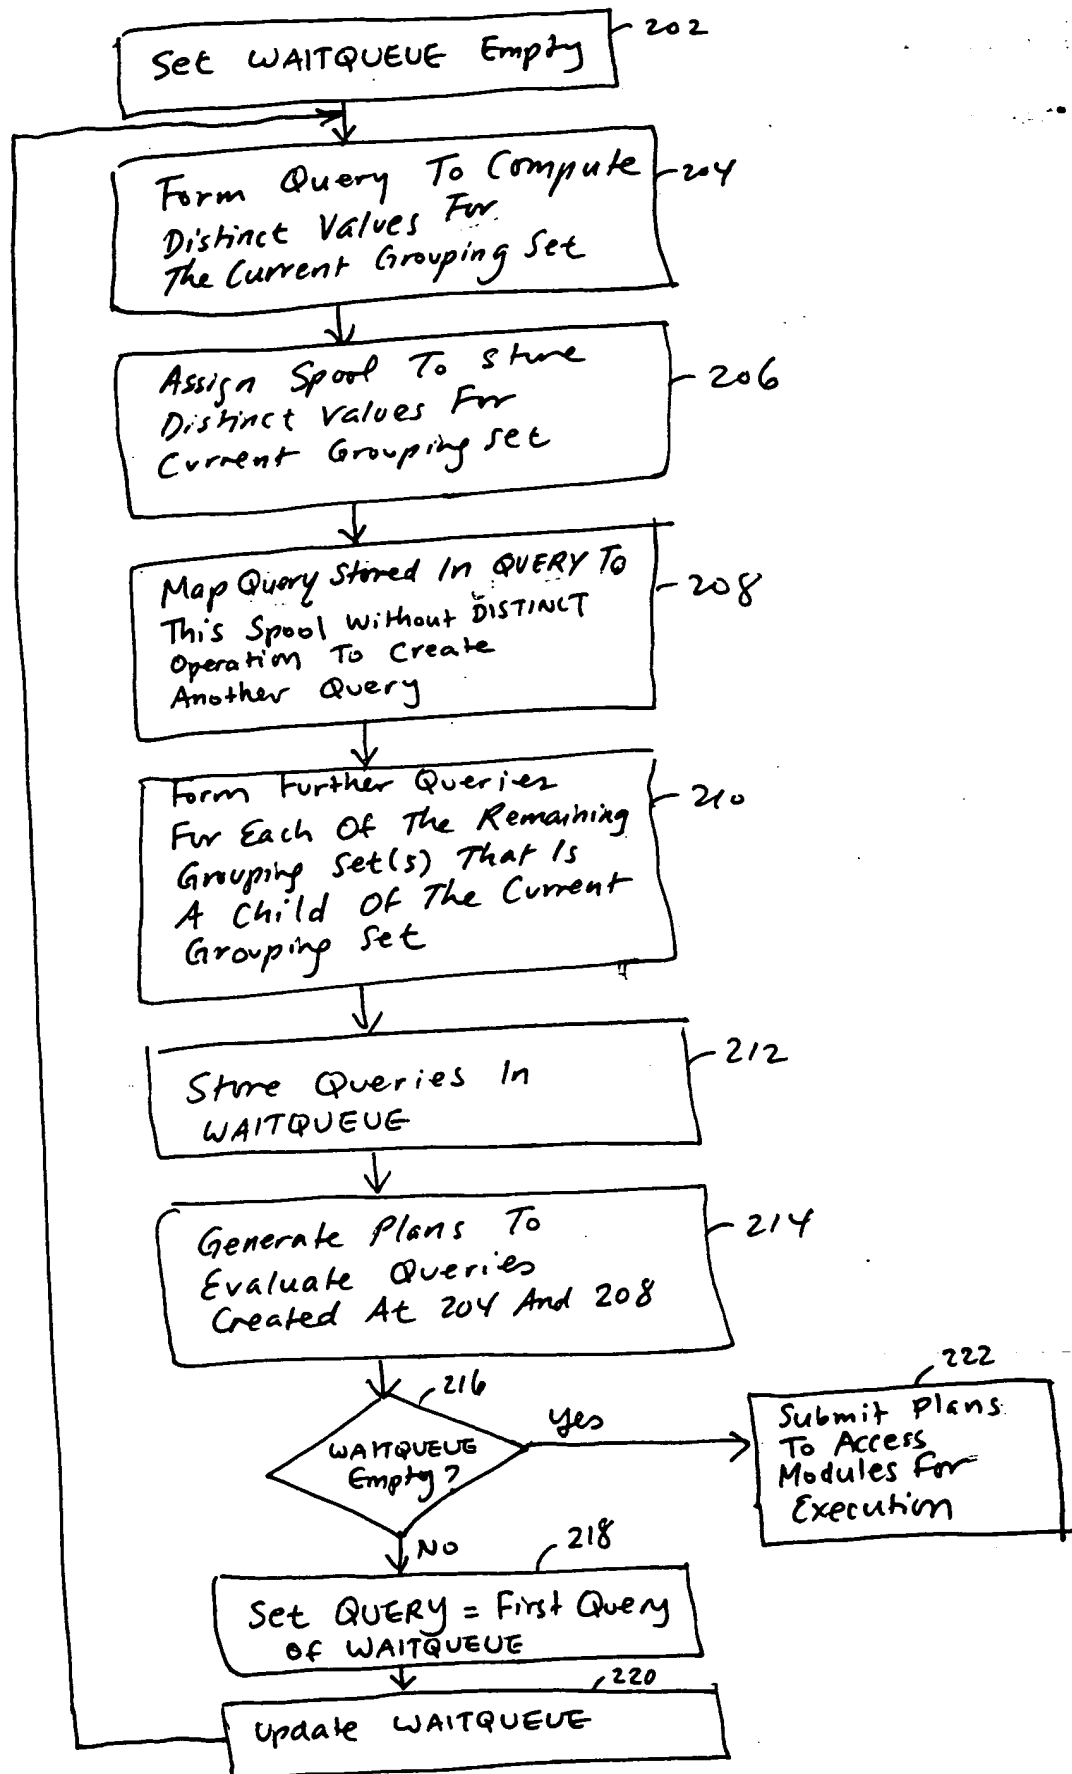 Set WAITQUEUE Empty
202
Form Query To Compute
Distinct Values For
The Current Grouping Set
204
Assign Spool To Store
Distinct Values For
Current Grouping Set
206
Map Query Stored In QUERY To
This Spool Without DISTINCT
Operation To Create
Another Query
208
Form Further Queries
For Each Of The Remaining
Grouping Set(s) That Is
A Child Of The Current
Grouping Set
210
Store Queries In
WAITQUEUE
212
Generate Plans To
Evaluate Queries
Created At 204 And 208
214
216
WAITQUEUE
Empty?
Yes
222
Submit Plans
To Access
Modules For
Execution
No
218
Set QUERY = First Query
Of WAITQUEUE
220
Update WAITQUEUE